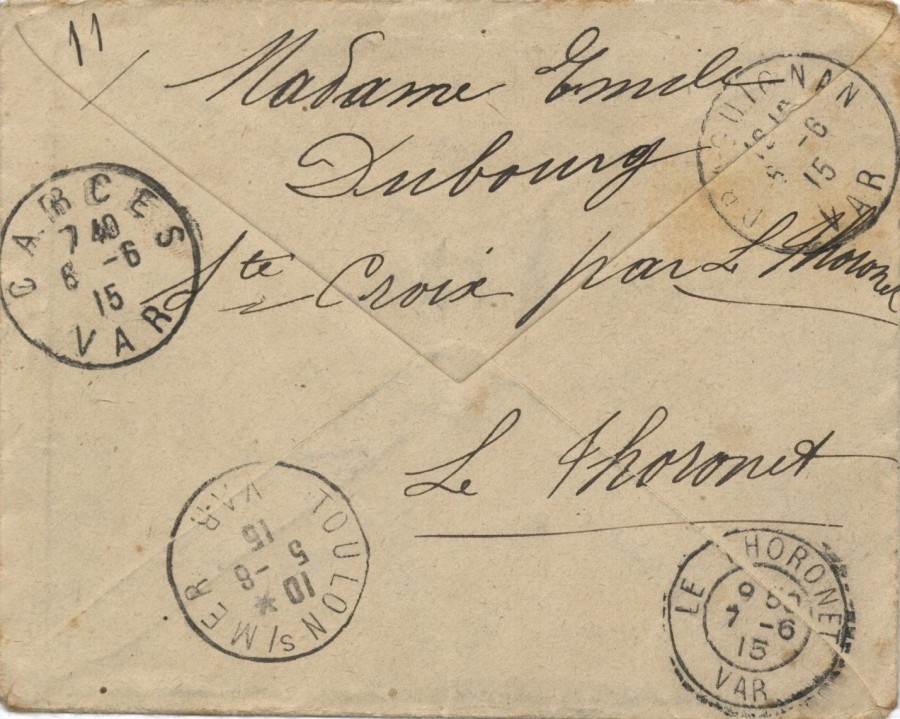 11
Madame Emile
Dubourg
Ste Croix par L Thoronet
Le Thoronet
DRAGUIGNAN
-6
15
VAR
CARCES
7 40
6 -6
15
VAR
TOULON S/MER
10 *
5 -6
15
VAR
LE THORONET
9
7 -6
15
VAR